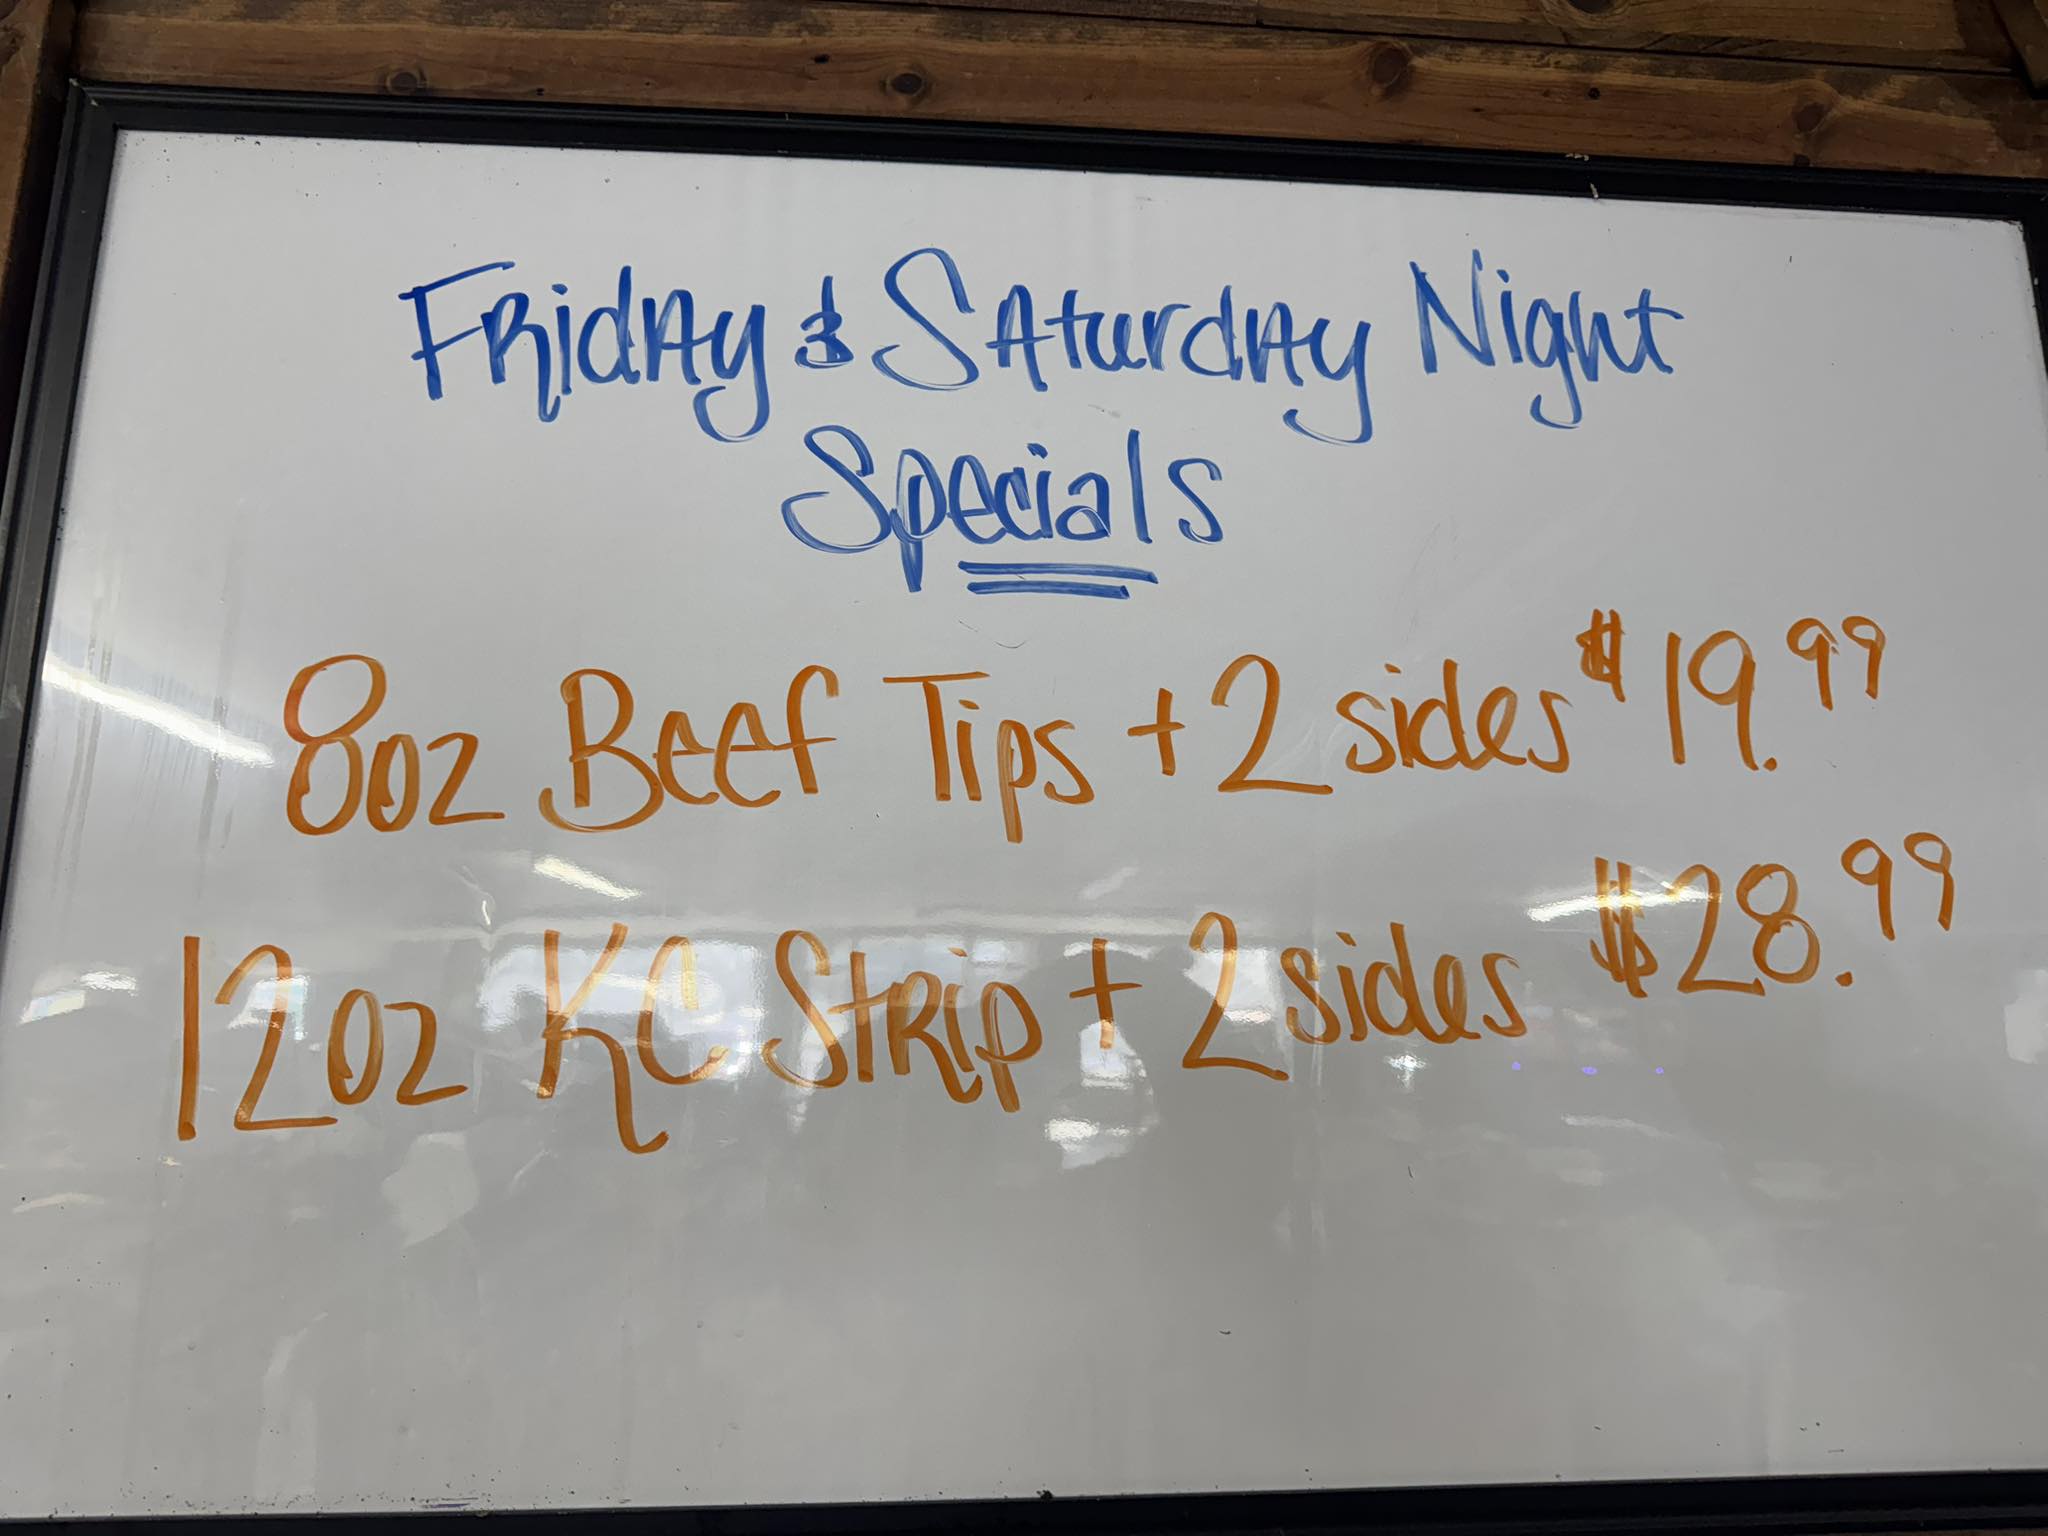 Friday & Saturday Night
Specials
8oz Beef Tips + 2 sides $19.99
12oz KC Strip + 2 sides $28.99